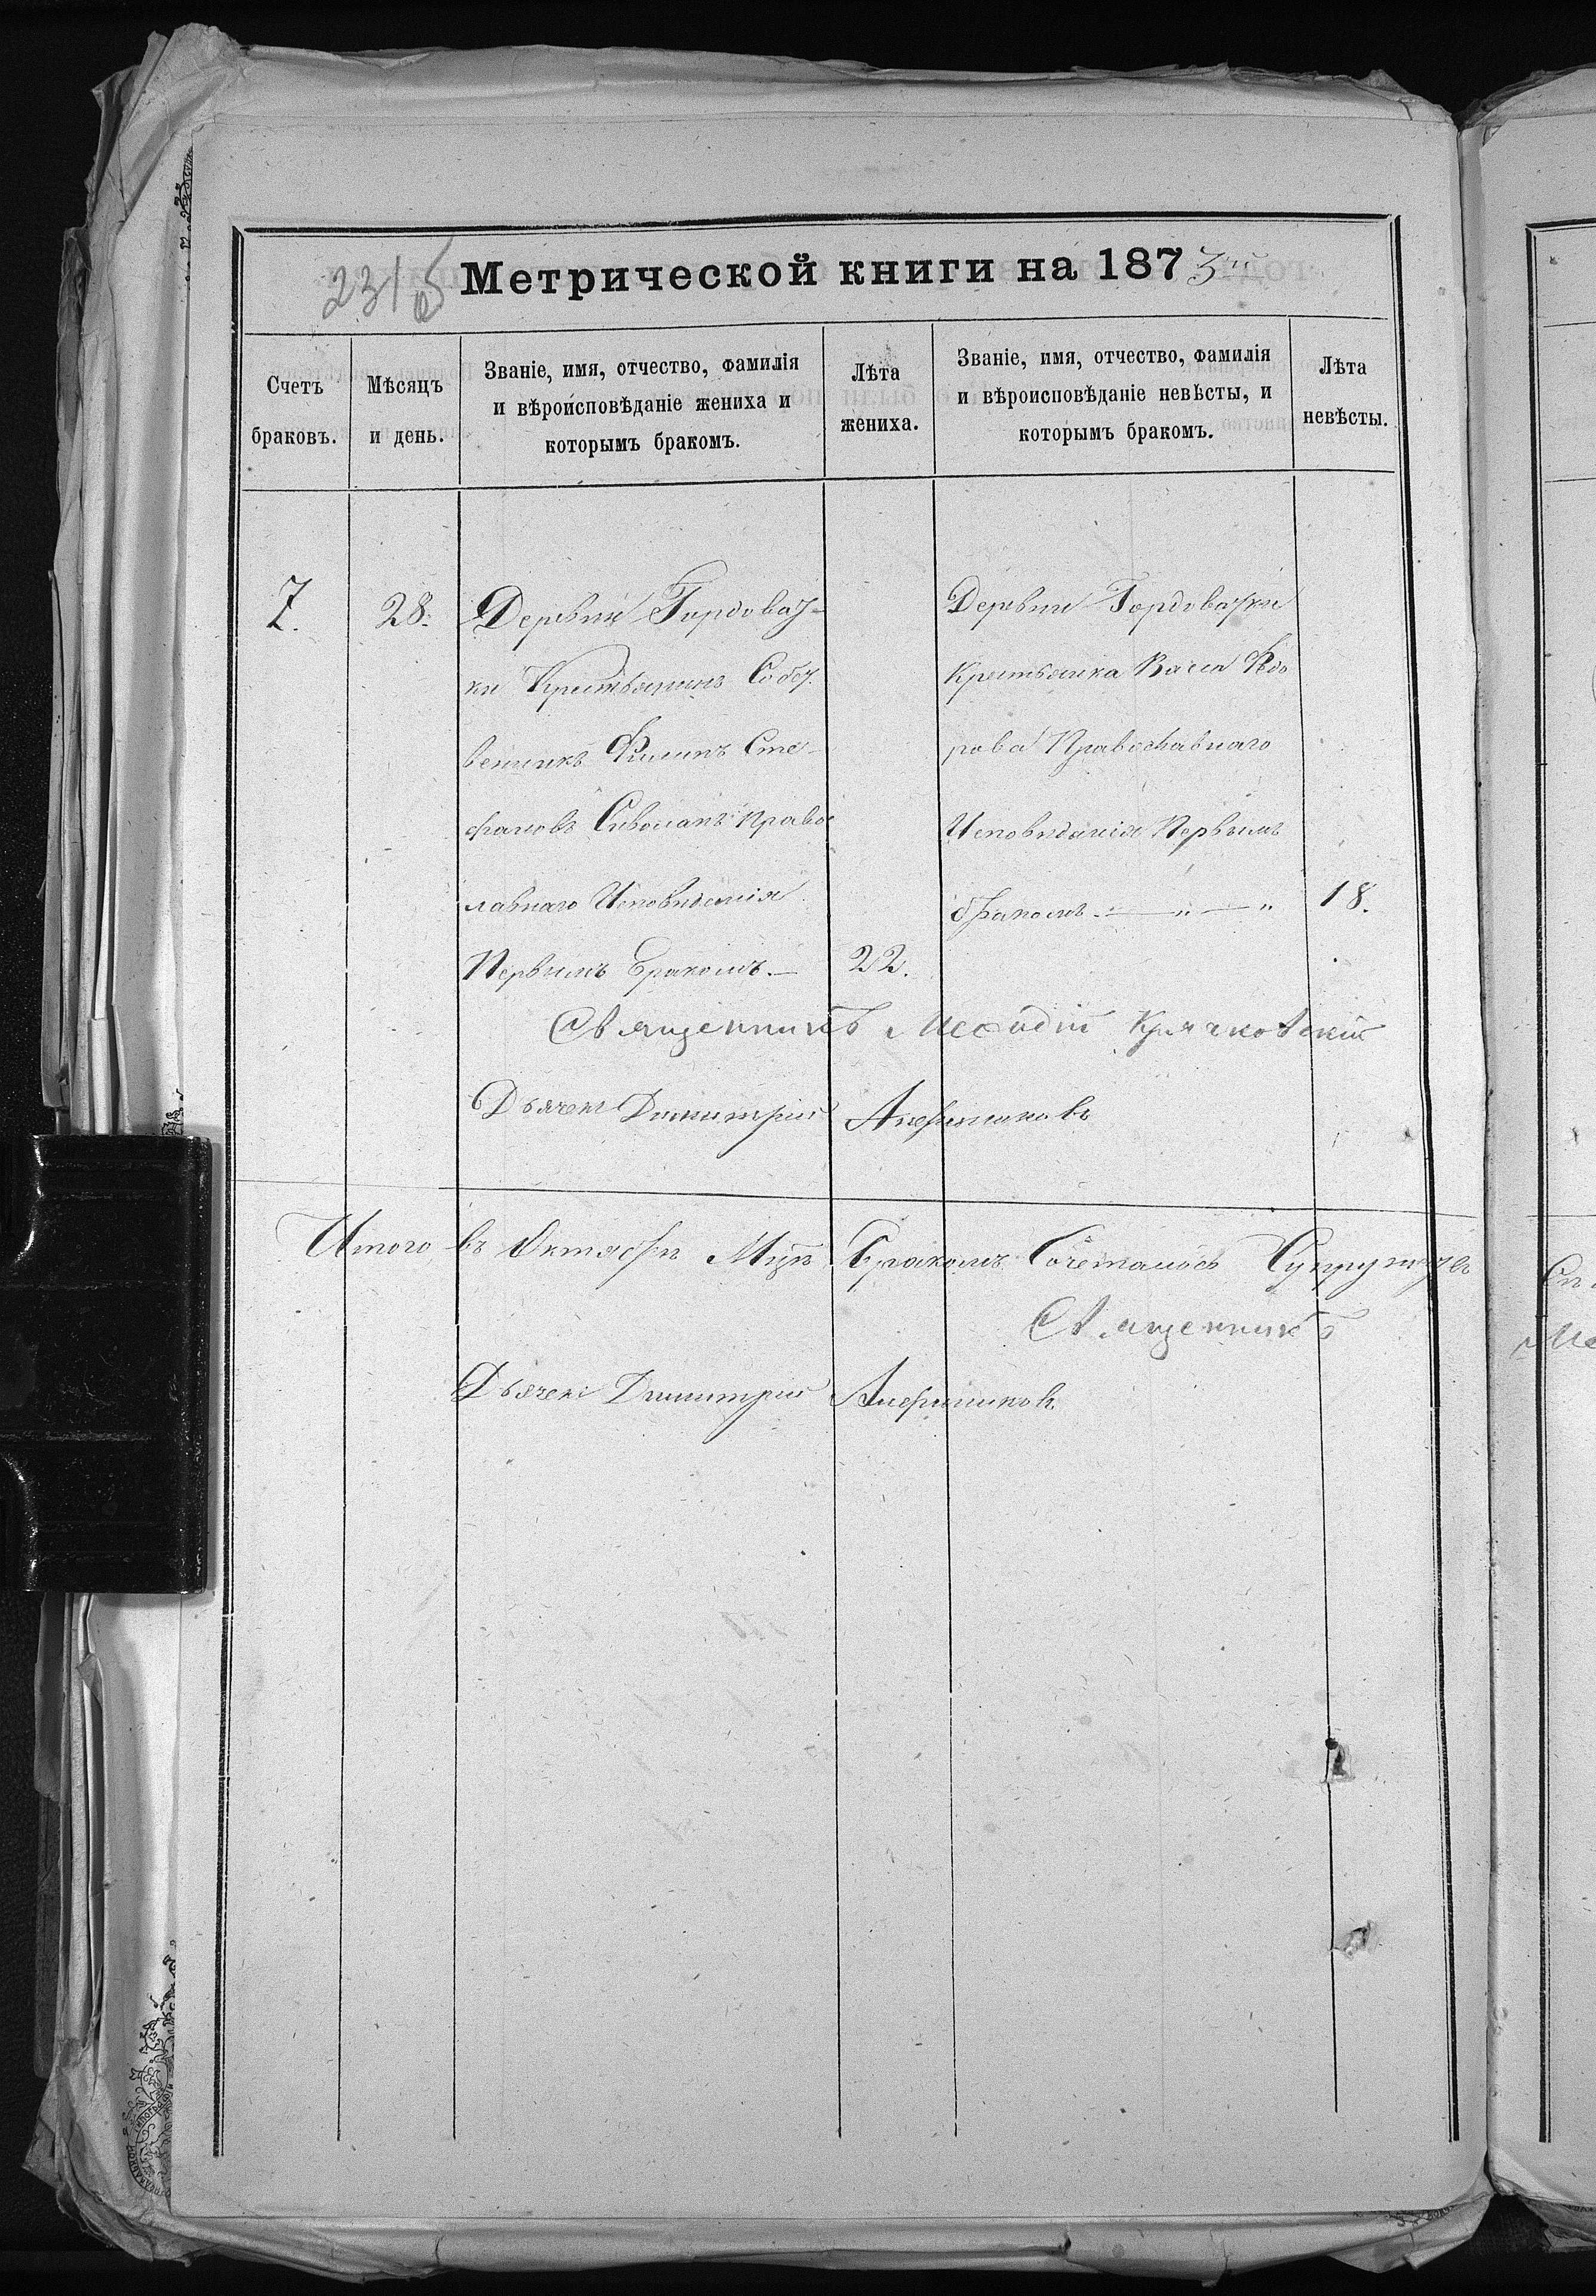 231 об
Метрической книги на 1873й
Счетъ браковъ.
Мѣсяцъ и день.
Званіе, имя, отчество, фамилія
и вѣроисповѣданіе жениха и
которымъ бракомъ.
Лѣта жениха.
Званіе, имя, отчество, фамилія
и вѣроисповѣданіе невѣсты, и
которымъ бракомъ.
Лѣта невѣсты.
7.
28.
Деревни Гордовач-
ки Крестьянинъ Собст
венникъ Филипъ Сте-
фановъ Сивоцапъ Правос
лавнаго Исповѣданія
Первымъ бракомъ.—
22.
Деревни Гордовачки
Крестьянка Васса Федо
рова Православнаго
Исповѣданія Первымъ
бракомъ. — „ — „
18.
Священникъ Меѳодій Крячковскій
Дьячекъ Димитрій
Итого въ Октябрѣ Мцѣ бракомъ Сочеталось Супружествъ
Священникъ
Дьячекъ Димитрій